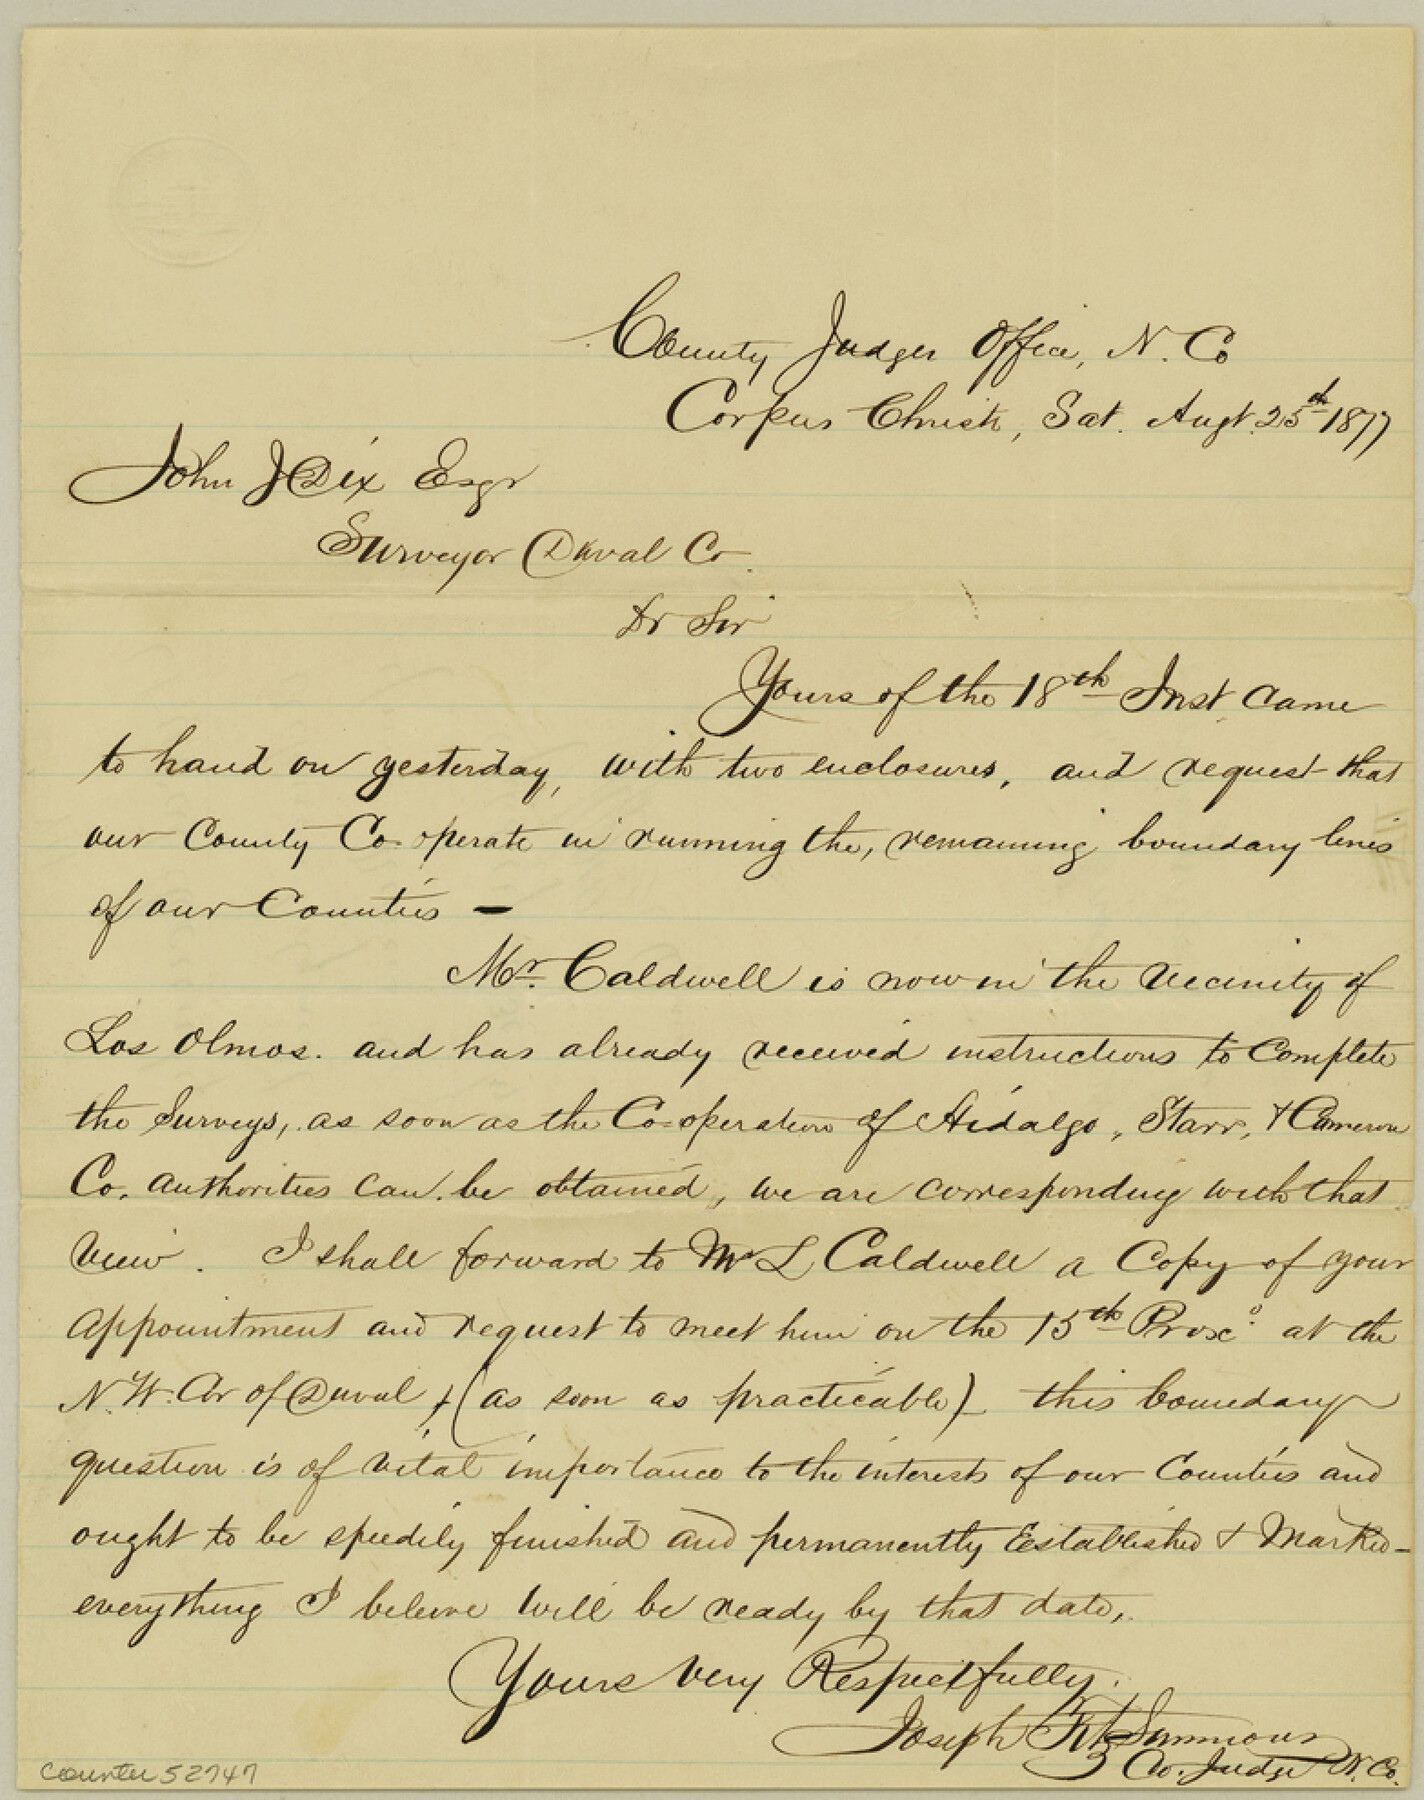 County Judges Office, N. Co
Corpus Christi, Sat. Augt. 25th 1877
John J Dix Esqr
Surveyor Duval Co.
Dr Sir
Yours of the 18th Inst came
to hand on yesterday, with two enclosures, and request that
our County Co-operate in running the, remaining boundary lines
of our Counties —
Mr. Caldwell is now in the vicinity of
Los Olmos. and has already received instructions to Complete
the Surveys, as soon as the Co-operation of Hidalgo, Starr, & Cameron
Co. authorities can be obtained, we are corresponding with that
view. I shall forward to Mr L Caldwell a Copy of your
appointment and request to meet him on the 15th Proxo. at the
N.W. Cor of Duval, & (as soon as practicable) this boundary
question is of vital importance to the interests of our Counties and
ought to be speedily finished and permanently Established & Marked—
everything I beleive will be ready by that date,.
Yours very Respectfully.
Joseph FitzSimmons
Co. Judge N. Co.
Counter 52747